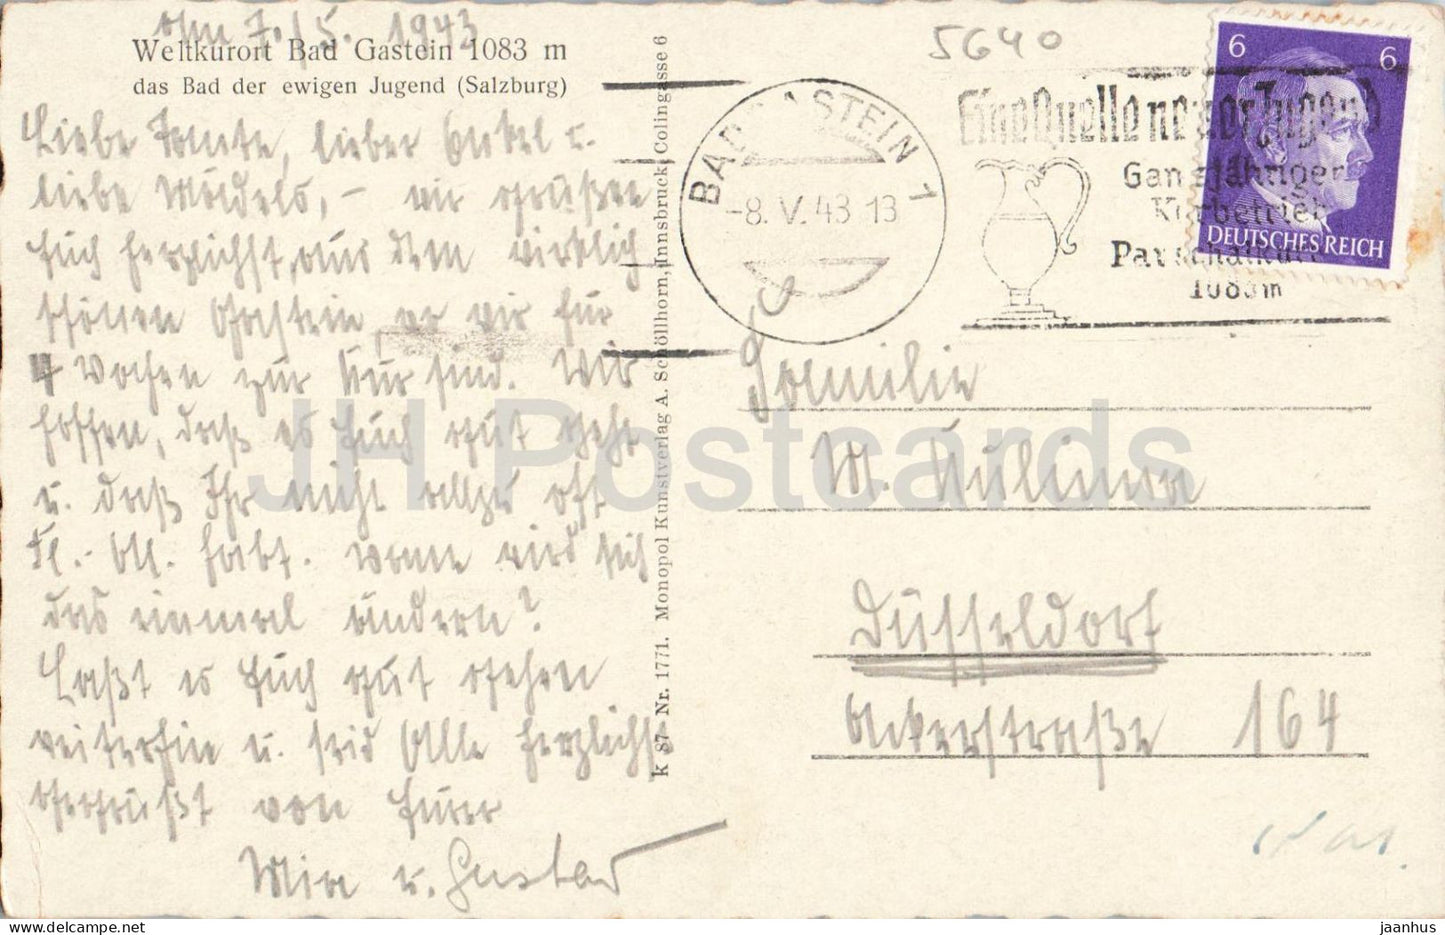 Am 7./5. 1943
Weltkurort Bad Gastein 1083 m
das Bad der ewigen Jugend (Salzburg)
Liebe Tante, lieber Onkel u.
liebe Mädels, – wir grüßen
Euch herzlichst aus dem wirklich
schönen Gastein, wo wir für
4 Wochen zur Kur sind. Wir
hoffen, daß es Euch gut geht
u. daß Ihr nicht allzu oft
Fl.-Al. habt. Wann wird sich
das einmal ändern?
Laßt es Euch gut gehen
weiterhin u. seid Alle herzlichst
gegrüßt von Eurer
Mia u. Gustav
k 87 Nr. 1771. Monopol Kunstverlag A. Schöllhorn, Innsbruck, Colingasse 6
5640
BAD GASTEIN 1
-8.V.43 13
Eine Quelle neuer Jugend
Ganzjähriger
Kurbetrieb
Pauschalkuren
1083m
6 6
DEUTSCHES REICH
Familie
W.
Düsseldorf
Ackerstraße 164
JH Postcards
jaanhus